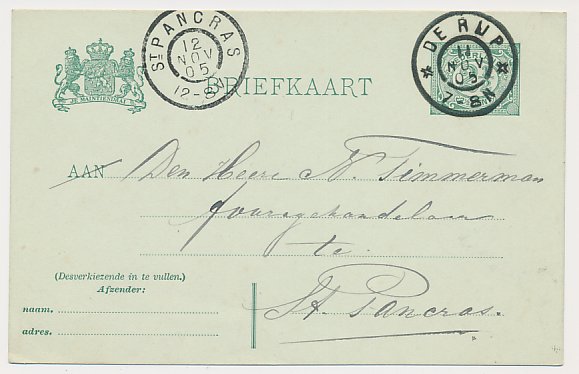 ST PANCRAS
12
NOV
05
12-8V
DE RIJP
11
NOV
05
7-8N
JE MAINTIENDRAI
BRIEFKAART
AAN Den Heere N. Timmerman
fouragehandelaar
te
St. Pancras.
(Desverkiezende in te vullen.)
Afzender:
naam.
adres.